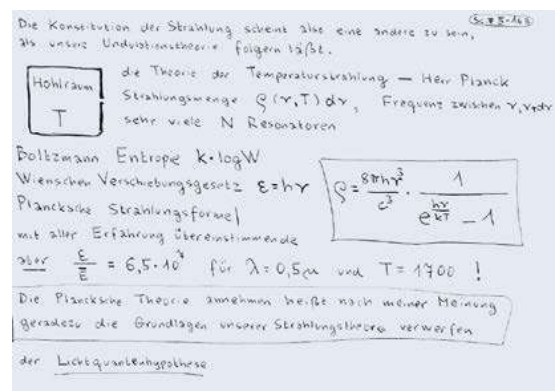 Die Konstitution der Strahlung scheint also eine andere zu sein,
als unsere Undulationstheorie folgern läßt.
Hohlraum
T
die Theorie der Temperaturstrahlung — Herr Planck
Strahlungsmenge ϱ(ν,T)dν, Frequenz zwischen ν, ν+dν
sehr viele N Resonatoren
Boltzmann Entropie k·logW
Wienschen Verschiebungsgesetz ε=hν
Plancksche Strahlungsformel
ϱ = 8πhν³/c³ · 1/(e^(hν/kT) − 1)
mit aller Erfahrung übereinstimmende
aber ε/ε̅ = 6,5·10⁷ für λ=0,5μ und T=1700 !
Die Plancksche Theorie annehmen heißt nach meiner Meinung
geradezu die Grundlagen unserer Strahlungstheorie verwerfen
der Lichtquantenhypothese